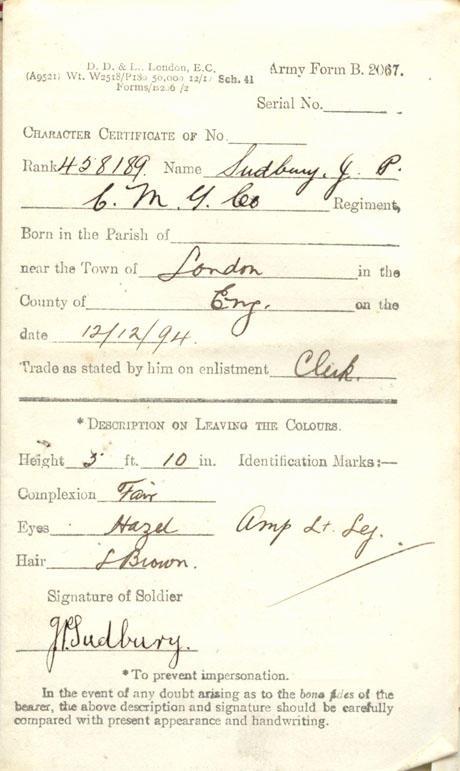 D. D. & L., London, E.C.
(A9521) Wt. W2518/P180 50,000 12/17 Sch. 41
Forms/B2.6/2
Army Form B. 2067.
Serial No.
CHARACTER CERTIFICATE OF No.
Rank 458189 Name Sudbury, J. P.
C. M. G. Co Regiment,
Born in the Parish of
near the Town of London in the
County of Eng. on the
date 12/12/94.
Trade as stated by him on enlistment Clerk.
*DESCRIPTION ON LEAVING THE COLOURS.
Height 5 ft. 10 in. Identification Marks:—
Complexion Fair
Eyes Hazel Amp Lt. Leg.
Hair L Brown.
Signature of Soldier
J.P. Sudbury.
*To prevent impersonation.
In the event of any doubt arising as to the bona fides of the
bearer, the above description and signature should be carefully
compared with present appearance and handwriting.